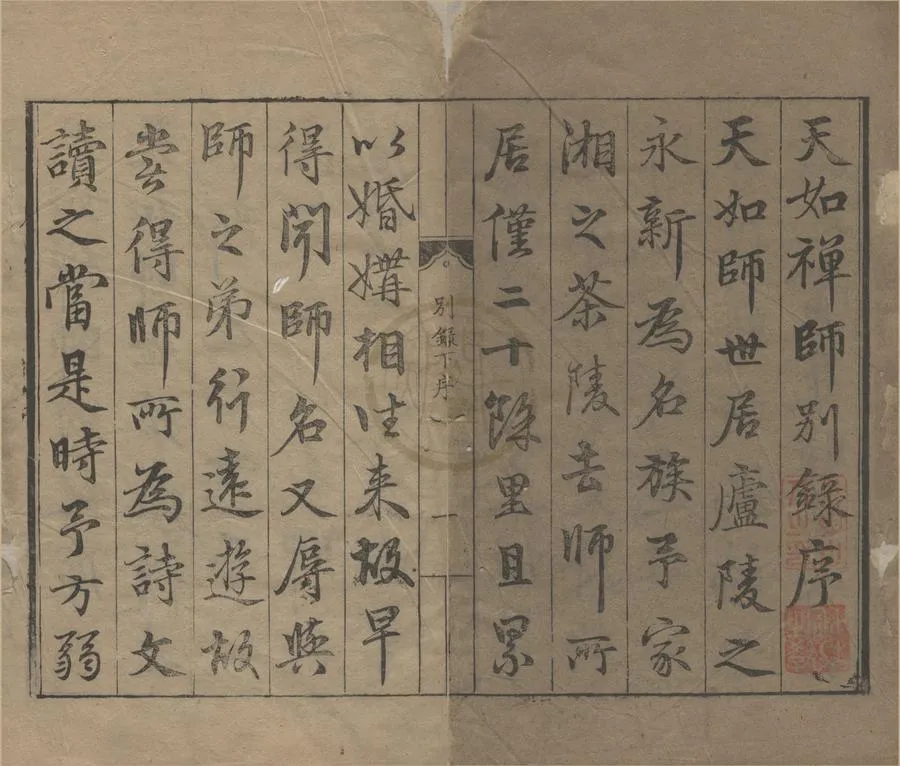 天如禪師別録序
天如師世居廬陵之
永新為名族予家
湘之茶陵去師所
居僅二十餘里且累
別録下序
一
以婚媾相往来故早
得聞師名又辱與
師之弟行遠遊故
甞得師所為詩文
讀之當是時予方弱